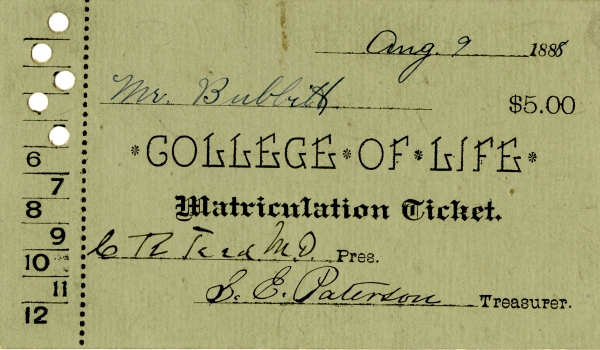 Aug. 9 1888
Mr. Bubbitt
$5.00
*COLLEGE*OF*LIFE*
Matriculation Ticket.
M.D. Pres.
S. E. Paterson Treasurer.
6
7
8
9
10
11
12